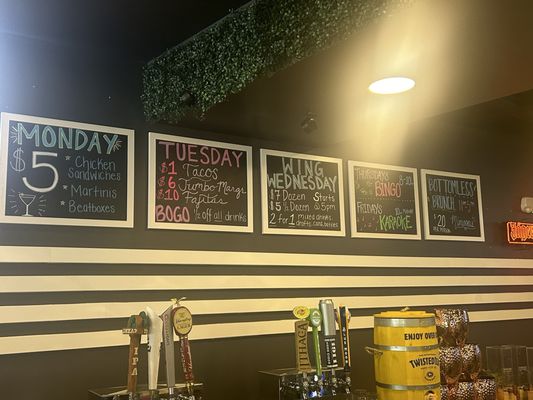 MONDAY
$5
* Chicken Sandwiches
* Martinis
* Beatboxes
TUESDAY
$1 Tacos
$6 Jumbo Margs
$10 Fajitas
BOGO 1/2 off all drinks
WING
WEDNESDAY
Dozen Starts
1/2 Dozen @ 5pm
2 for 1 mixed drinks,
drafts, cans, bottles
THURSDAYS
BINGO
FRIDAYS
KARAOKE
BOTTOMLESS
BRUNCH
$20
IPA
ITHACA
ENJOY OVER
TWISTED